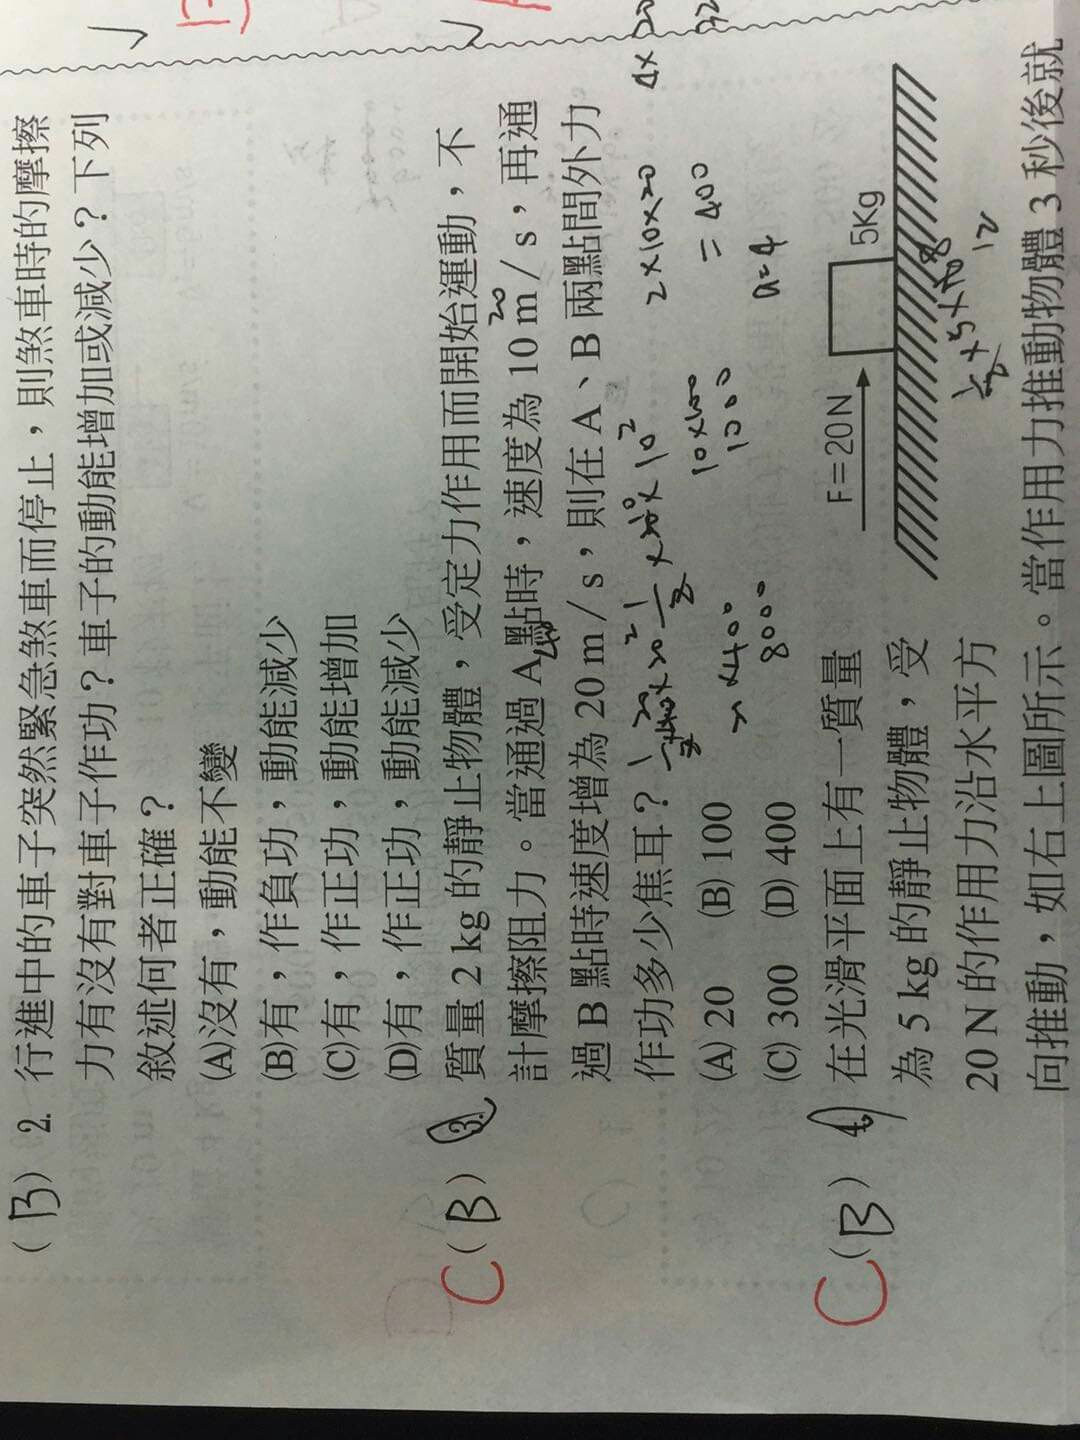 (B) 2. 行進中的車子突然緊急煞車而停止，則煞車時的摩擦
力有沒有對車子作功？車子的動能增加或減少？下列
敘述何者正確？
(A)沒有，動能不變
(B)有，作負功，動能減少
(C)有，作正功，動能增加
(D)有，作正功，動能減少
C (B) 3. 質量 2 kg 的靜止物體，受定力作用而開始運動，不
計摩擦阻力。當通過 A 點時，速度為 10 m / s，再通
20
過 B 點時速度增為 20 m / s，則在 A、B 兩點間外力
作功多少焦耳？
(A) 20 (B) 100
(C) 300 (D) 400
2×10×20
= 400
a=4
10×100
1000
×400
8000
C (B) 4. 在光滑平面上有一質量
為 5 kg 的靜止物體，受
20 N 的作用力沿水平方
向推動，如右上圖所示。當作用力推動物體 3 秒後就
F=20N
5Kg
12